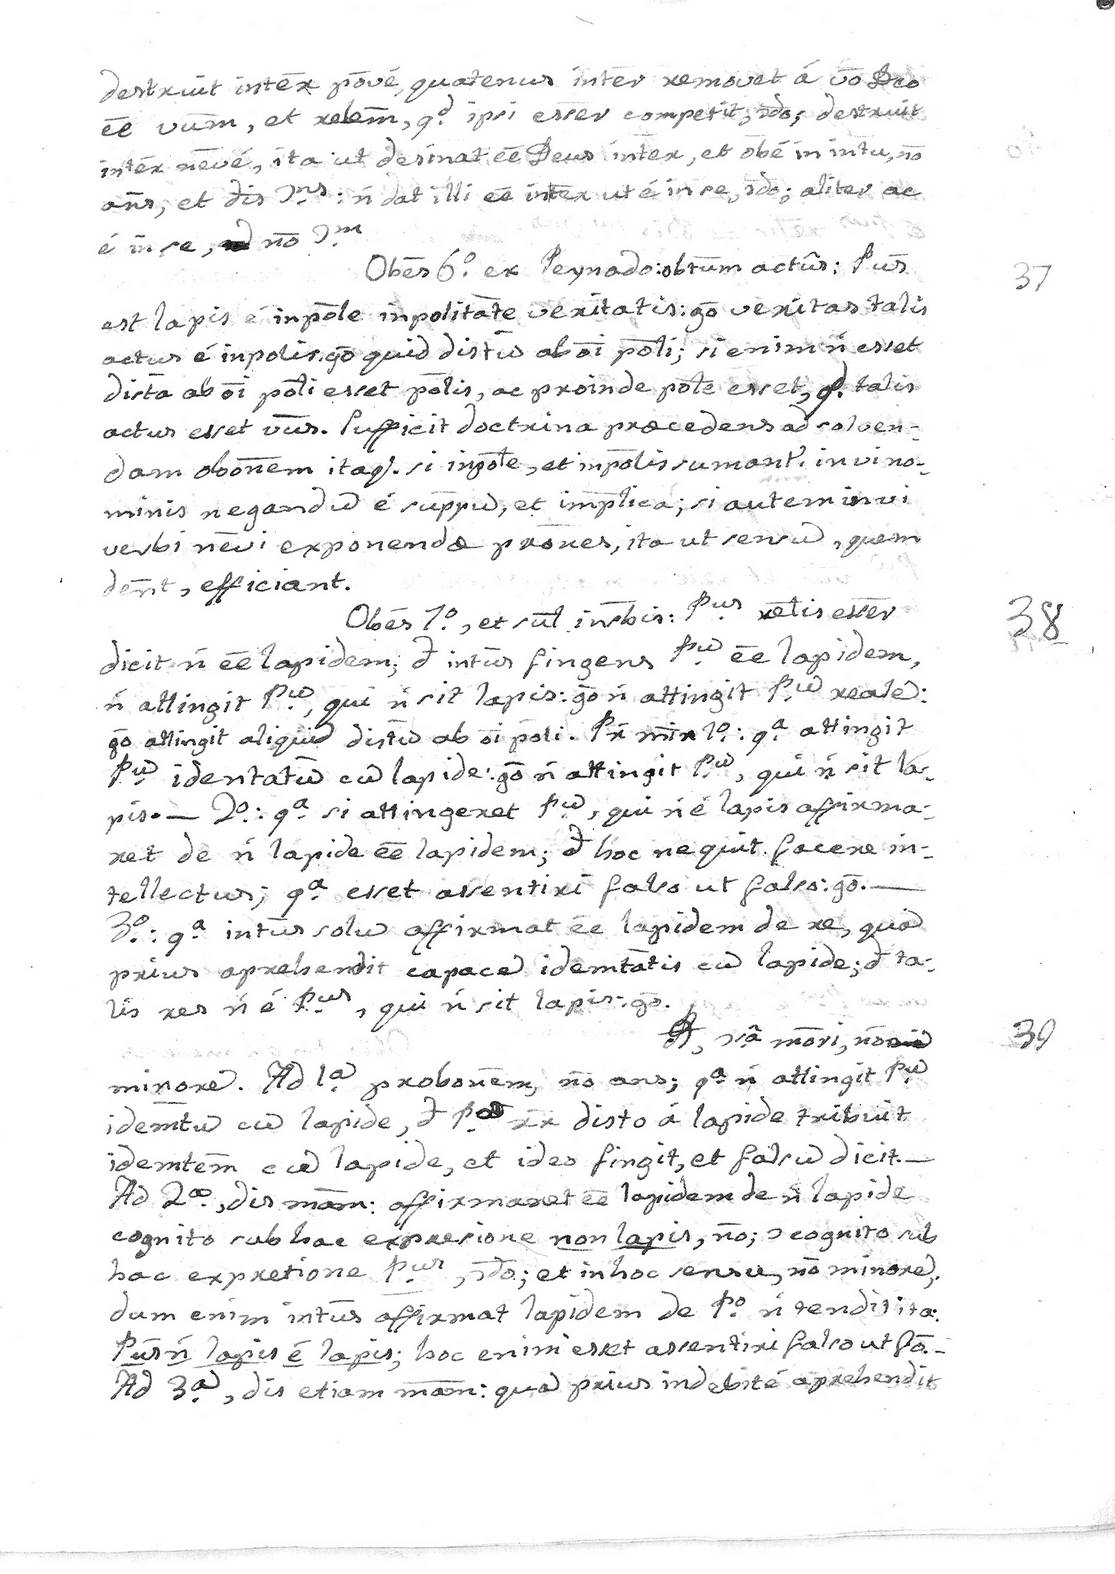 destruit intēr pōvé, quatenus inter removet á v̄o Deo
ēe vūm, et relem̄, q.d ipsi esser competit, ↄ̄do; destruit
intēr nēvé, ita ut desinat ēe Deus intēr, et obé in intu, nō
ān̄s, et dis ↄ.ns: ń dat illi ēe intēr ut é in se, ↄ̄do; aliter ac
é in se, nō ↄ.m
Obēs 6.o ex Peynado: obtūm actûs: Pūs
est lapis é inpōle inpolitāte veritatis: ḡo veritas talis
actus é inpolis: ḡo quid distū ab oī pōli; si enim ń esset
dista ab oī pōli esset pōlis, ac proinde pōle esset, q. talis
actus esset vūs. Sufficit doctrina præcedens ad solven-
dam obonēm itaq. si inpōle, et inpōlis sumant. in vi no-
minis negandū é suppū, et implica; si autem in vi
verbi nēvi exponendæ prōnes, ita ut sensū, quem
dēnt, efficiant.
Obēs 7.o, et sūl in r̄bis: P.us rēlis essēr
dicit ń ēe lapidem; đ intūs fingens P.ū ēe lapidem,
ń attingit P.ū, qui ń sit lapis: ḡo ń attingit P.ū reale:
ḡo attingit aliquid distū ab oī poli. Pŕ mīr 1.o: q.a attingit
P.ū identatū cū lapide: ḡo ń attingit P.ū, qui ń sit la-
pis. — 2.o: q.a si attingeret P.ū, qui ń é lapis affirma-
ret de ń lapide ēe lapidem; đ hoc nequit facere in-
tellectus; q.a esset assentiri falso ut falso: ḡo. —
3.o: q.a intūs solū affirmat ēe lapidem de re, quā
prius aprehendit capacē idemtātis cū lapide; đ ta-
lis res ń é P.us, qui ń sit lapis: ḡo.
mōri, nō
minore. Ad 1.a probonēm, nō ans; q.a ń attingit P.ū
idemtū cū lapide, đ P.o disto á lapide tribuit
idemtem̄ cū lapide, et ideo fingit, et falsū dicit. —
Ad 2.a, dis mām: affirmaret ēe lapidem de ń lapide
cognito sub hac expresione non lapis, nō; ↄ cognito sub
hac expretione P.us, ↄ̄do; et in hoc sensu, nō minore,
dum enim intūs affirmat lapidem de P.o ń tendit ita:
Pūs ń lapis é lapis; hoc enim esset assentiri falso ut fō. —
Ad 3.a, dis etiam mām: quā prius indebité aprehendit
37
38
39